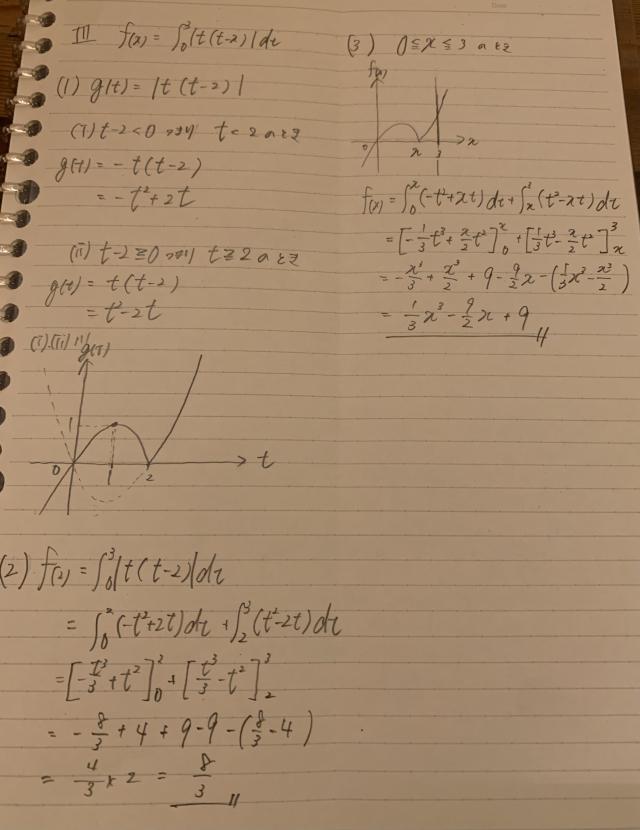 III f(x) = ∫₀³|t(t-x)|dt
(1) g(t) = |t(t-2)|
(i) t-2<0 つまり t<2のとき
g(t) = -t(t-2)
= -t²+2t
(ii) t-2≧0 つまり t≧2のとき
g(t) = t(t-2)
= t²-2t
(i),(ii)より
g(t)
1
0 1 2 t
(2) f(2) = ∫₀³|t(t-2)|dt
= ∫₀²(-t²+2t)dt + ∫₂³(t²-2t)dt
= [-t³/3+t²]₀² + [t³/3-t²]₂³
= -8/3 + 4 + 9-9-(8/3-4)
= 4/3 × 2 = 8/3
(3) 0≦x≦3のとき
f(x)
0 x 3 x
f(x) = ∫₀ˣ(-t²+xt)dt + ∫ₓ³(t²-xt)dt
= [-1/3t³+x/2t²]₀ˣ + [1/3t³-x/2t²]ₓ³
= -x³/3 + x³/2 + 9 - 9/2x - (1/3x³-x³/2)
= 1/3x³ - 9/2x + 9